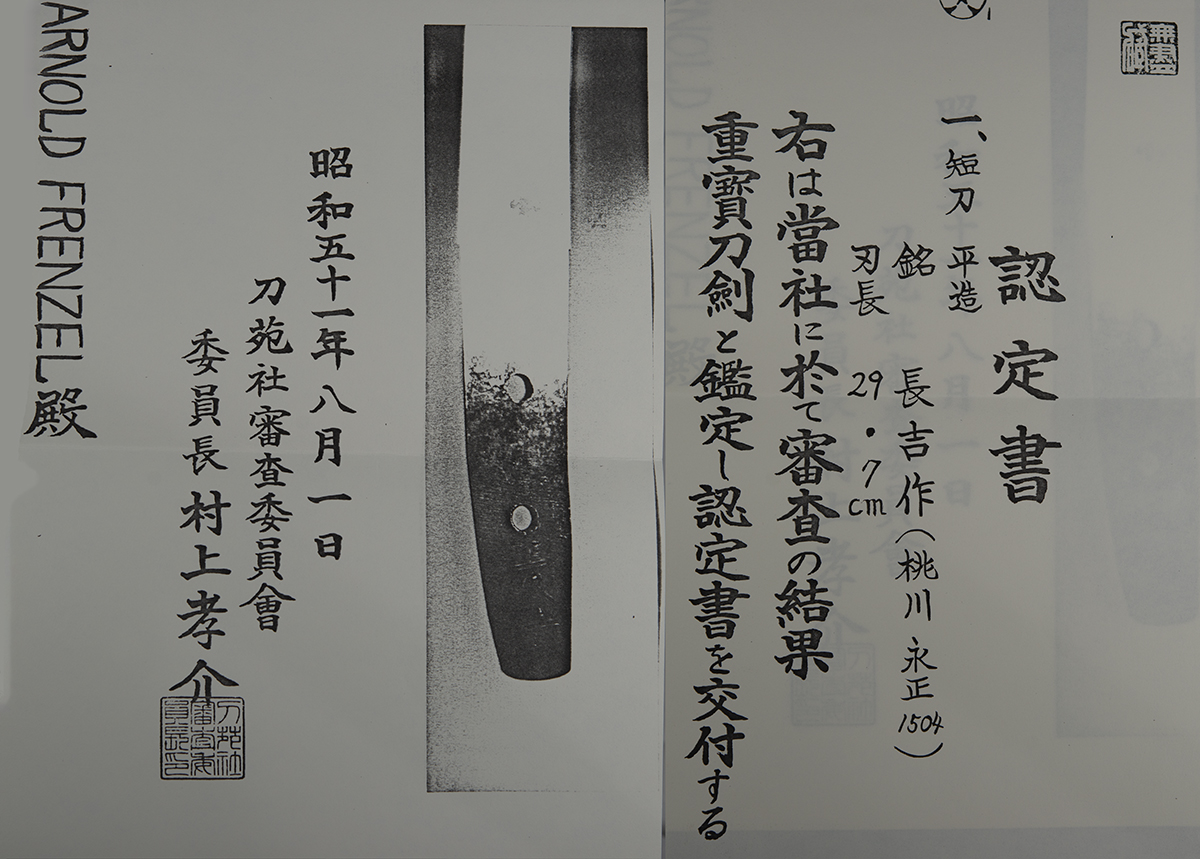 認定書
一、短刀 平造
銘 長吉作（桃川 永正 1504）
刃長 29.7cm
右は當社に於て審査の結果
重寶刀劍と鑑定し認定書を交付する
昭和五十一年八月一日
刀苑社審査委員會
委員長 村上孝介
刀苑社
審査委
員長印
ARNOLD FRENZEL殿